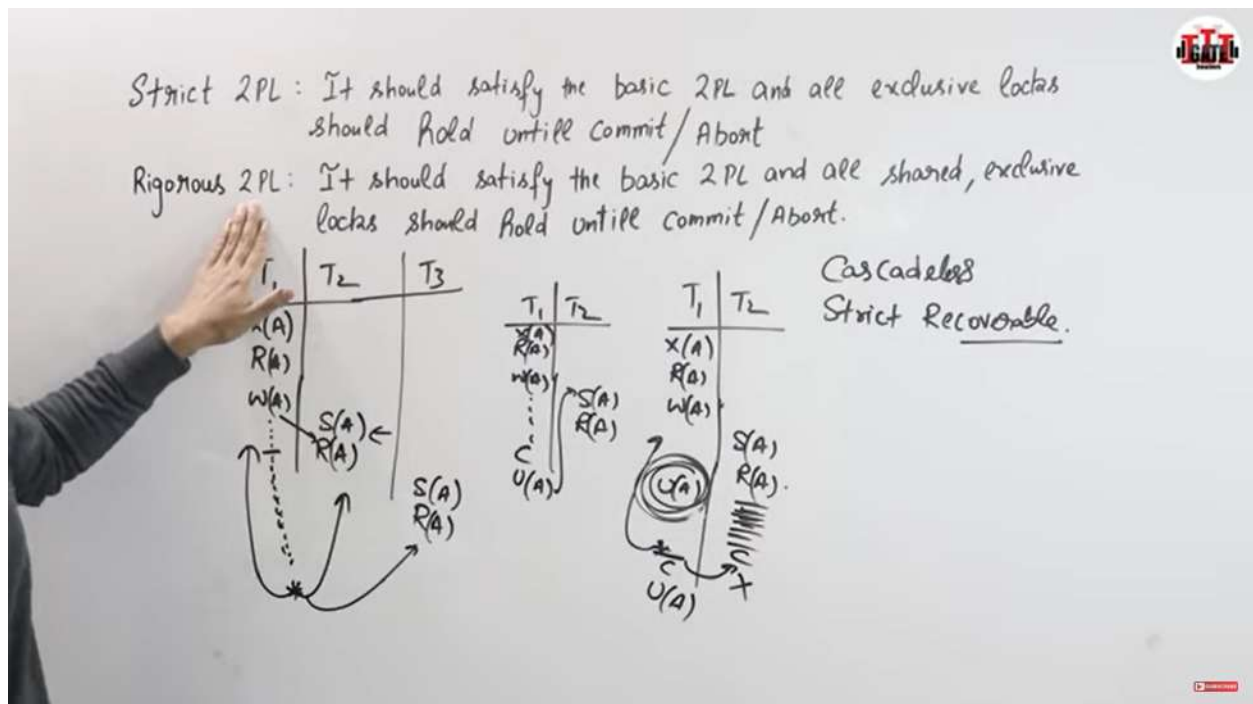 Strict 2PL : It should satisfy the basic 2PL and all exclusive locks
should hold untill Commit / Abort
Rigorous 2PL : It should satisfy the basic 2PL and all shared, exclusive
locks should hold untill commit / Abort.
T1 T2 T3
(A)
R(A)
W(A)
S(A)
R(A)
S(A)
R(A)
T1 T2
X(A)
R(A)
W(A)
S(A)
R(A)
C
U(A)
T1 T2
X(A)
R(A)
W(A)
S(A)
R(A).
U(A)
C
C
U(A)
Cascadeless
Strict Recoverable.
GATE
SUBSCRIBE